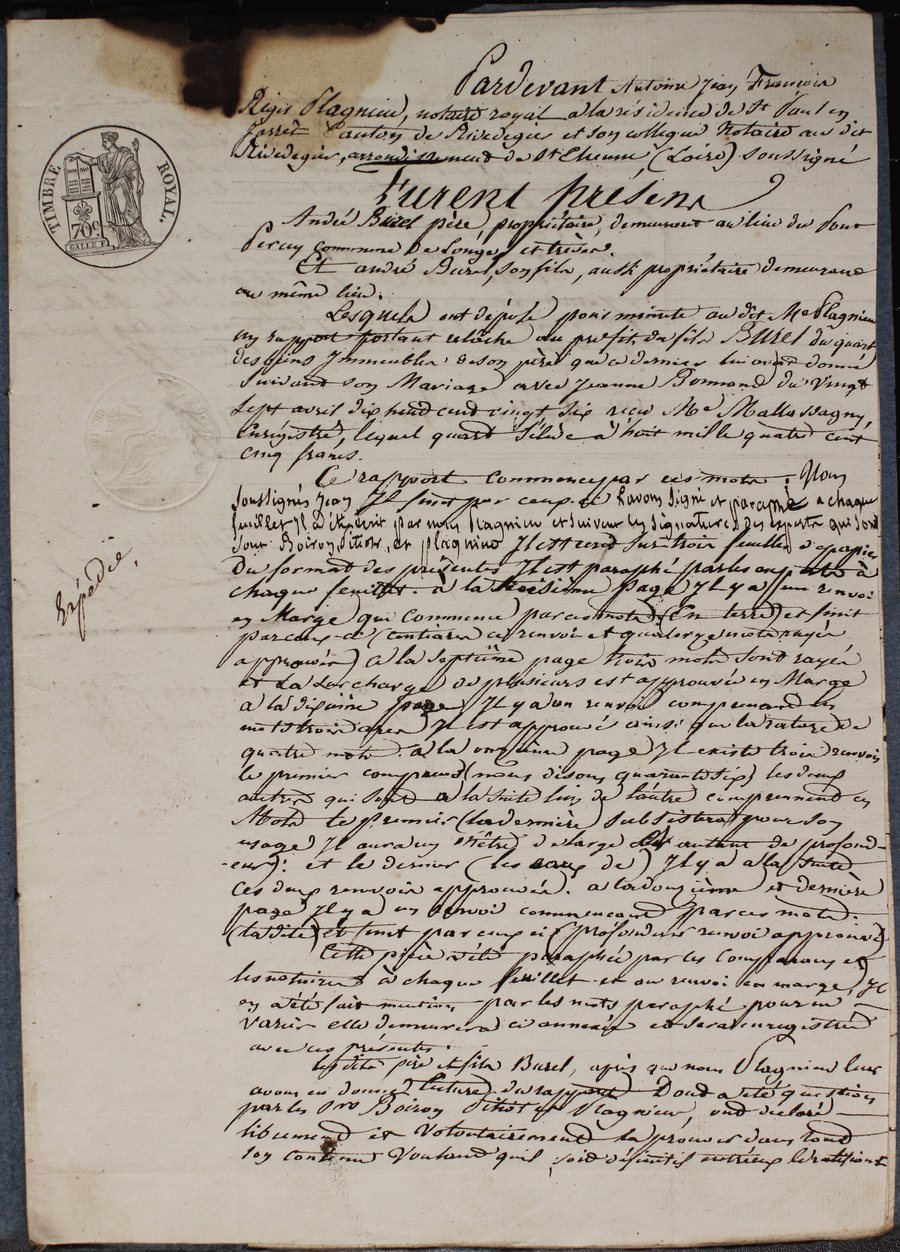 Pardevant Antoine Jean François
Régis Plagnieu, notaire royal à la résidence de St Paul en
Jarrêt Canton de Rivedegier et son collegue Notaire au dit
Rivedegier, arrondissement de St Etienne, (Loire) soussigné
Furent présens
André Burel père, propriétaire, demeurant au lieu du Pont
Percay commune de Longes et trèves.
Et andré Burel, son fils, aussi propriétaire demeurant
au même lieu.
Lesquels ont déposé pour minute au dit Me Plagnieu
un rapport portant relache au profit du fils Burel du quart
des biens Immeubles de son père que ce dernier lui avait donné
suivant son Mariage avec Jeanne Bonnand du Vingt
Sept avril dix huit cent vingt six reçu Me Mallassagny,
Enrégistré, lequel quart s'élève à huit mille quatre cent
cinq francs.
Ce rapport commence par ces mots: Nous
soussignés Jean Il finit par ceux ci Lavons signé et paraphé a chaque
feuillet Il a été écrit par nous Plagnieu et suivent les signatures des experts qui sont
sont Boiron, pitiot, et plagnieu Il est étend sur trois feuilles de papier
du format des présentes Il est paraphé par les à
chaque feuillet. à la troisième page Il y a un renvoi
en Marge qui commence par ces mots (En terre) et finit
par ceux-ci (contiares ce renvoi et quatorze mots rayés
approuvés) à la septième page trois mots sont rayés
et La surcharge de plusieurs est approuvée en Marge
à la dixième page Il y a un renvoi comprenant les
mots trois ares Il est approuvé ainsi que la rature de
quatre mots. à la onzième page Il existe trois renvois
le premier comprend (nous disons quarante six) les deux
autres qui sont à la suite lun de l'autre comprennent ces
Mots le premier (la dernière) subsistera pour son
usage Il aura un mêtre de large sur autant de profond-
eur): et le dernier (les eaux de) Il y a à la suite
ces deux renvois approuvés. à la douzième et dernière
page Il y a un renvoi commencant par ces mots:
(la dite) et finit par ceux ci (profondeurs renvoi approuvé)
Cette pièce a été paraphée par les Comparans et
les notaires à chaque feuillet et au renvoi en marge, Il
en a été fait mention par les mots paraphé pour ne
varier elle demeurera ci annexée et sera enregistrée
avec ces présentes.
Les dits père et fils Burel, après que nous Plagnieu leur
avons en donné lecture du rapport Dont a été question
par les Srs Boiron Pitiot et Plagnieu, ont déclaré
librement et volontairement la prouver dans tout
son contenu Voulant qu'il soit définitif entr'eux
Expédié,
TIMBRE ROYAL.
70c